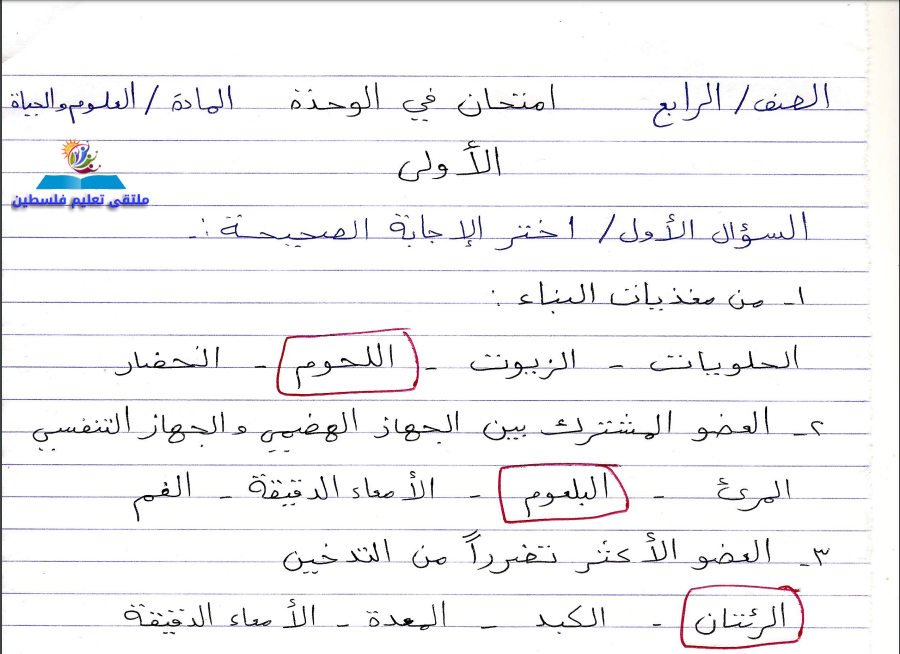 الصف/ الرابع امتحان في الوحدة المادة / العلوم والحياة
الأولى
ملتقى تعليم فلسطين
السؤال الأول/ اختر الإجابة الصحيحة :-
١- من مغذيات البناء :
الحلويات - الزيوت - اللحوم - الخضار
٢- العضو المشترك بين الجهاز الهضمي والجهاز التنفسي
المرئ - البلعوم - الأمعاء الدقيقة - الفم
٣- العضو الأكثر تضرراً من التدخين
الرئتان - الكبد - المعدة - الأمعاء الدقيقة